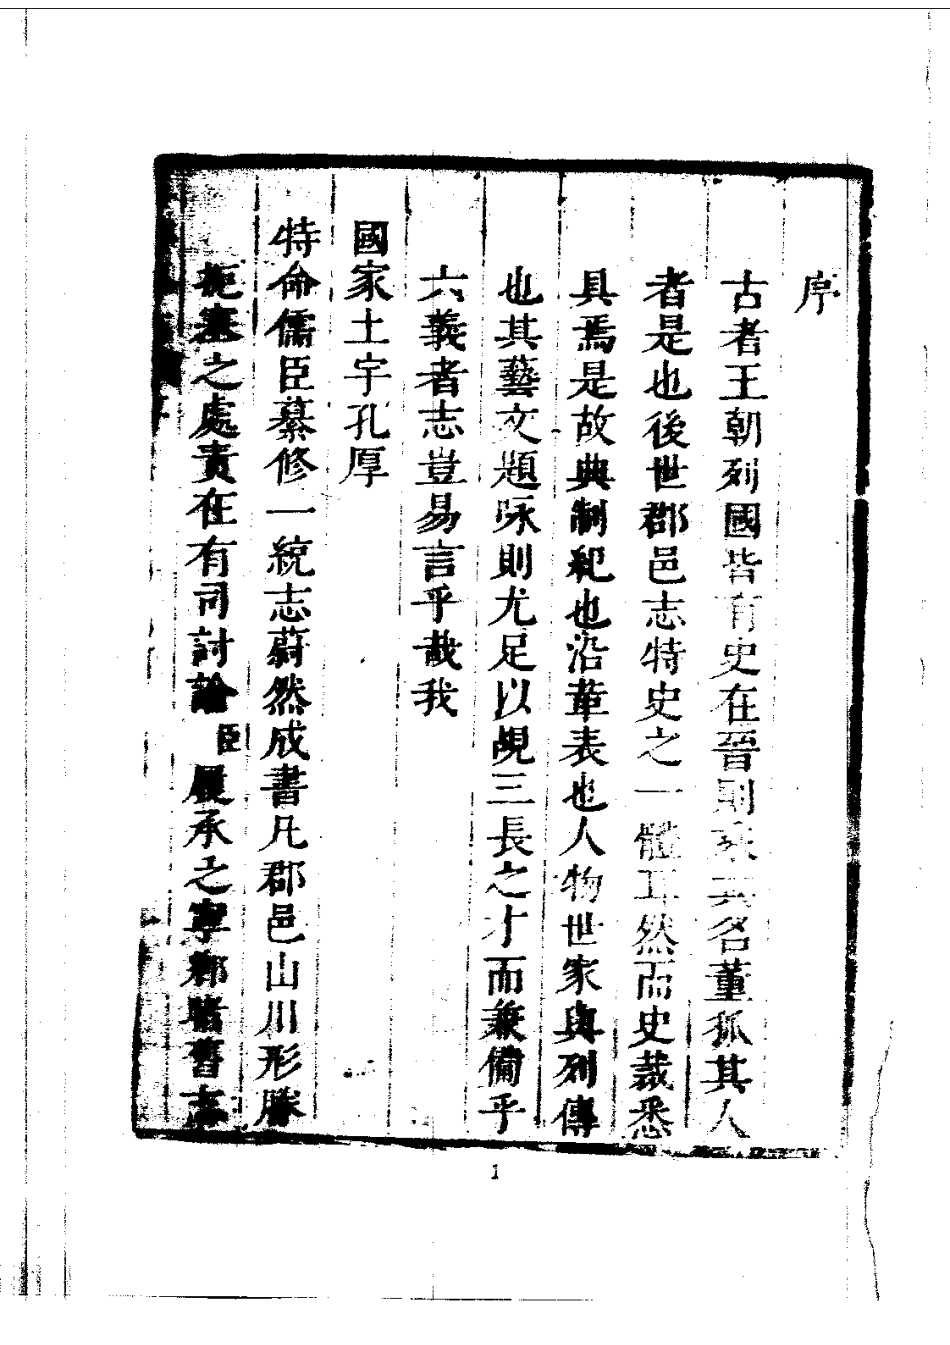 序
古者王朝列國皆有史在晉則乘其名董狐其人
者是也後世郡邑志特史之一體耳然而史裁悉
具焉是故典制紀也沿革表也人物世家與列傳
也其藝文題咏則尤足以覘三長之才而兼備乎
六義者志豈易言乎哉我
國家土宇孔厚
特命儒臣纂修一統志蔚然成書凡郡邑山川形勝
扼塞之處責在有司討論臣履承之寧鄉睹舊志
1